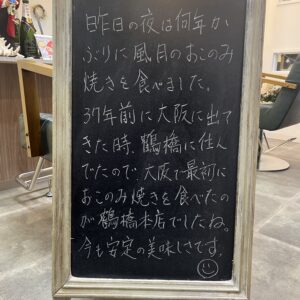 昨日の夜は何年か
ぶりに風月のおこのみ
焼きを食べました。
37年前に大阪に出て
きた時、鶴橋に住ん
でたので、大阪で最初に
おこのみ焼きを食べたの
が鶴橋本店でしたね。
今も安定の美味しさです。